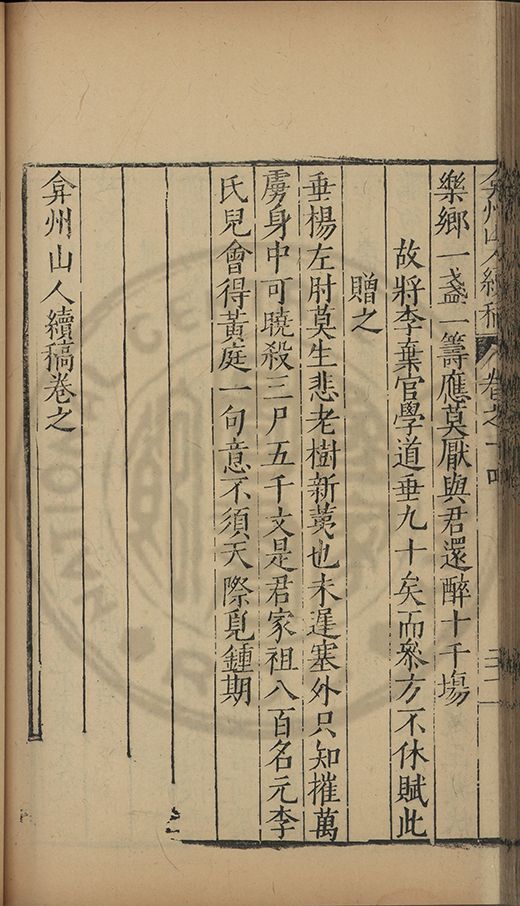 弇州山人續稿 卷之十四
樂鄉一盞一籌應莫厭與君還醉十千塲
故將李棄官學道垂九十矣而叅方不休賦此
贈之
垂楊左肘莫生悲老樹新荑也未遲塞外只知摧萬
虜身中可曉殺三尸五千文是君家祖八百名元李
氏兒會得黃庭一句意不須天際覓鍾期
弇州山人續稿卷之